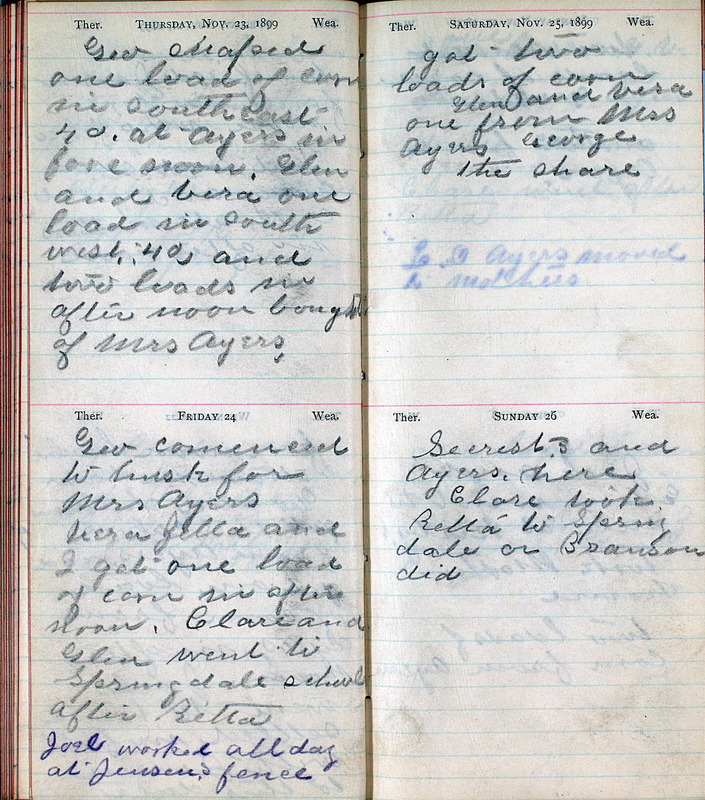 Ther. THURSDAY, NOV. 23, 1899 Wea.
Geo
one load of corn
in south east
40. at Ayers in
fore noon. Glen
and Vera one
load in south
west, 40, and
two loads in
after noon bought
of Mrs Ayers,
Ther. FRIDAY 24 Wea.
Geo comenced
to husk for
Mrs Ayers
Vera Zella and
I got one load
of corn in after
noon. Clare and
Glen went to
Springdale school
after Retta
Joel worked all day
at Jensens fence
Ther. SATURDAY, NOV. 25, 1899 Wea.
got two
loads of corn
Glen and Vera
one from Mrs
Ayers George
the share
Ayers moved
to
Ther. SUNDAY 26 Wea.
Secrest,s and
Ayers, here
Clare took
Retta to Spring
dale or Branson
did